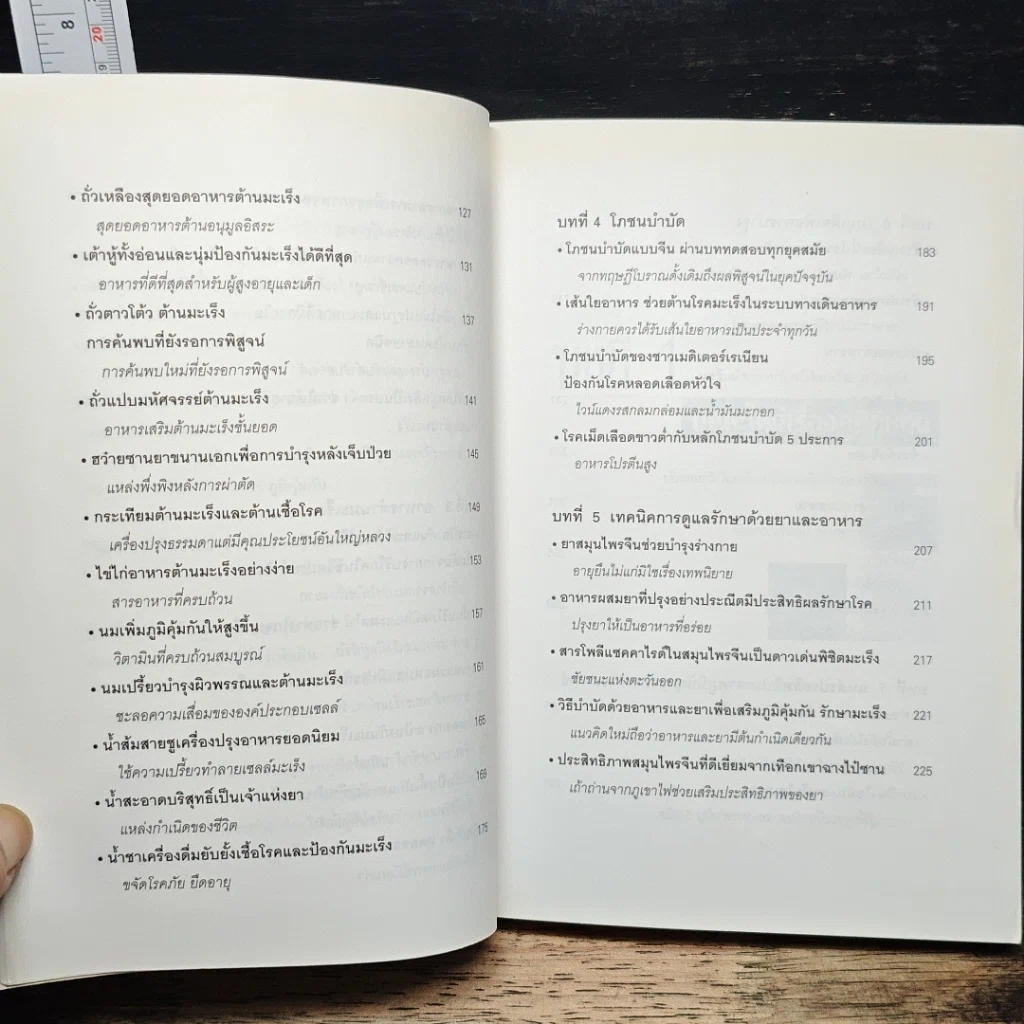 8
20
19
• ถั่วเหลืองสุดยอดอาหารต้านมะเร็ง 127
สุดยอดอาหารต้านอนุมูลอิสระ
• เต้าหู้ทั้งอ่อนและนุ่มป้องกันมะเร็งได้ดีที่สุด 131
อาหารที่ดีที่สุดสำหรับผู้สูงอายุและเด็ก
• ถั่วดาวโต้ว ต้านมะเร็ง 137
การค้นพบที่ยังรอการพิสูจน์
การค้นพบใหม่ที่ยังรอการพิสูจน์
• ถั่วแปบมหัศจรรย์ต้านมะเร็ง 141
อาหารเสริมต้านมะเร็งชั้นยอด
• ฮว๋ายซานยาขนานเอกเพื่อการบำรุงหลังเจ็บป่วย 145
แหล่งพึ่งพิงหลังการผ่าตัด
• กระเทียมต้านมะเร็งและต้านเชื้อโรค 149
เครื่องปรุงธรรมดาแต่มีคุณประโยชน์อันใหญ่หลวง
• ไข่ไก่อาหารต้านมะเร็งอย่างง่าย 153
สารอาหารที่ครบถ้วน
• นมเพิ่มภูมิคุ้มกันให้สูงขึ้น 157
วิตามินที่ครบถ้วนสมบูรณ์
• นมเปรี้ยวบำรุงผิวพรรณและต้านมะเร็ง 161
ชะลอความเสื่อมขององค์ประกอบเซลล์
• น้ำส้มสายชูเครื่องปรุงอาหารยอดนิยม 165
ใช้ความเปรี้ยวทำลายเซลล์มะเร็ง
• น้ำสะอาดบริสุทธิ์เป็นเจ้าแห่งยา 169
แหล่งกำเนิดของชีวิต
• น้ำชาเครื่องดื่มยับยั้งเชื้อโรคและป้องกันมะเร็ง 175
ขจัดโรคภัย ยืดอายุ
บทที่ 4 โภชนบำบัด
• โภชนบำบัดแบบจีน ผ่านบททดสอบทุกยุคสมัย 183
จากทฤษฎีโบราณดั้งเดิมถึงผลพิสูจน์ในยุคปัจจุบัน
• เส้นใยอาหาร ช่วยต้านโรคมะเร็งในระบบทางเดินอาหาร 191
ร่างกายควรได้รับเส้นใยอาหารเป็นประจำทุกวัน
• โภชนบำบัดของชาวเมดิเตอร์เรเนียน 195
ป้องกันโรคหลอดเลือดหัวใจ
ไวน์แดงรสกลมกล่อมและน้ำมันมะกอก
• โรคเม็ดเลือดขาวต่ำกับหลักโภชนบำบัด 5 ประการ 201
อาหารโปรตีนสูง
บทที่ 5 เทคนิคการดูแลรักษาด้วยยาและอาหาร
• ยาสมุนไพรจีนช่วยบำรุงร่างกาย 207
อายุยืนไม่แก่มิใช่เรื่องเทพนิยาย
• อาหารผสมยาที่ปรุงอย่างประณีตมีประสิทธิผลรักษาโรค 211
ปรุงยาให้เป็นอาหารที่อร่อย
• สารโพลีแซคคาไรด์ในสมุนไพรจีนเป็นดาวเด่นพิชิตมะเร็ง 217
ชัยชนะแห่งตะวันออก
• วิธีบำบัดด้วยอาหารและยาเพื่อเสริมภูมิคุ้มกัน รักษามะเร็ง 221
แนวคิดใหม่ถือว่าอาหารและยามีต้นกำเนิดเดียวกัน
• ประสิทธิภาพสมุนไพรจีนที่ดีเยี่ยมจากเทือกเขาฉางไป๋ซาน 225
เถ้าถ่านจากภูเขาไฟช่วยเสริมประสิทธิภาพของยา